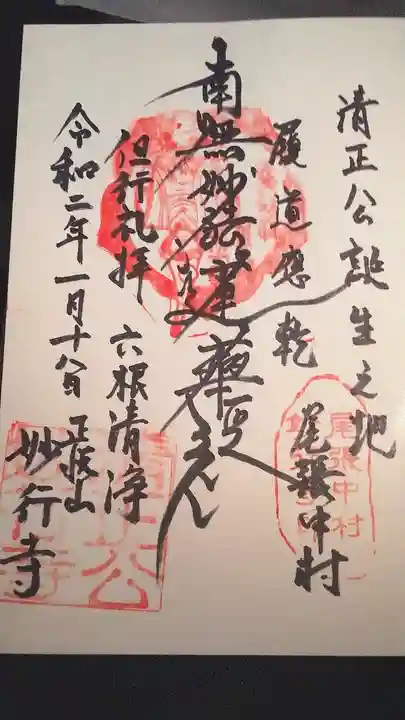 清正公誕生之地
尾張中村
履道應乾
南無妙法蓮華経
但行礼拝
六根清浄
令和二年一月十八日
正悦山
妙行寺
尾張中村
清正公